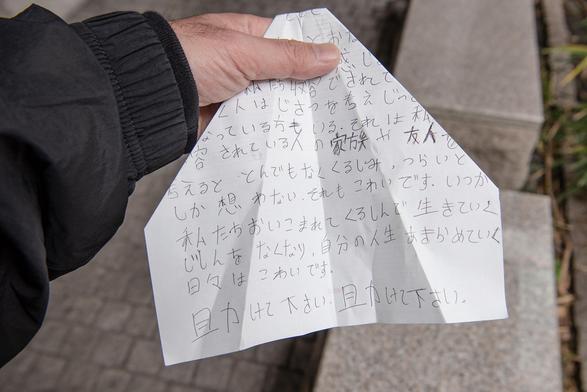 とおな
感し
収容されて
人はじさつを考え
なっている方もいる。それは私
容されている人の家族や友人を
考えると、とんでもなくくるしみ、つらいと
しか想わない。それもこわいです。いつか
私たちおいこまれてくるしんで生きていく
じしんをなくなり、自分の人生あきらめていく
日々はこわいです。
助けて下さい。助けて下さい。